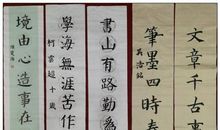 文章千古事
筆墨四時春
吳浩銘
書山有路勤為
學海無涯苦作
柯雲超十歲
境由心造事在